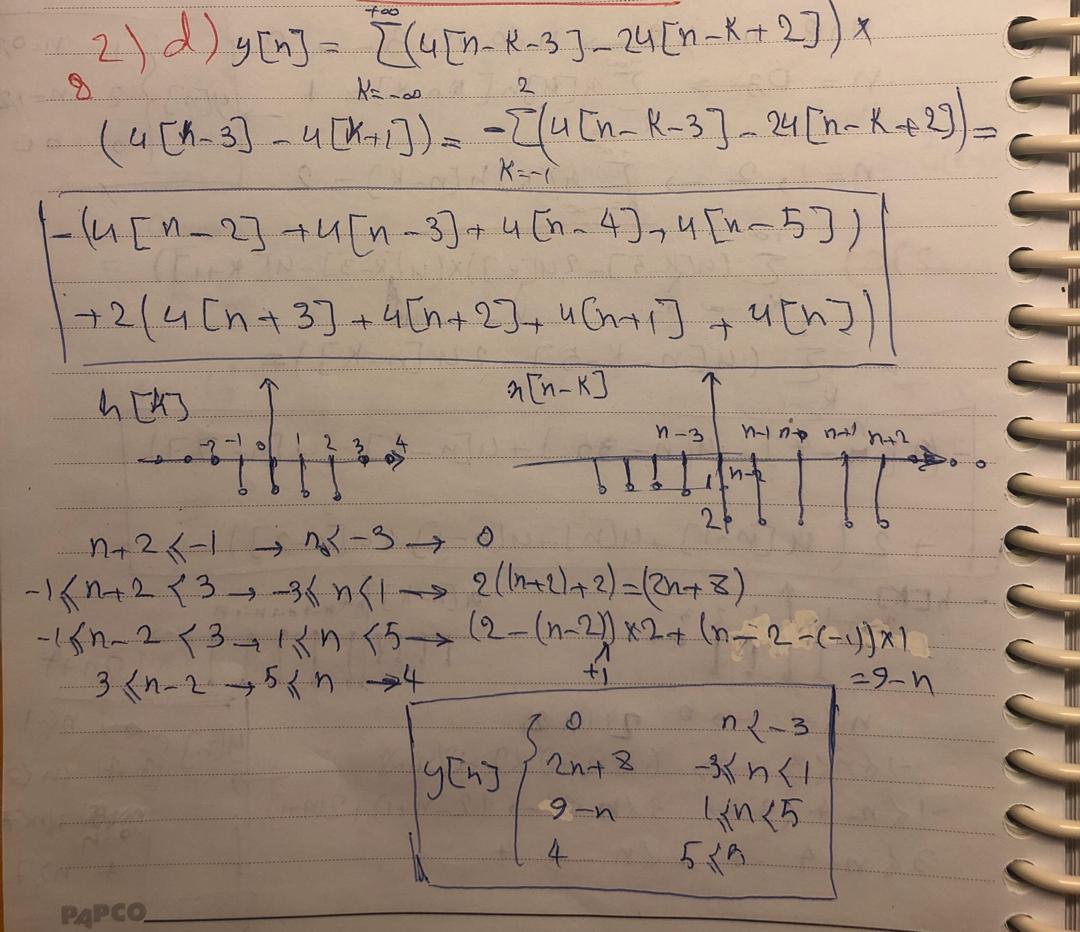 2) d) y[n] = +∞ Σ k=-∞ (u[n-k-3] - 2u[n-k+2]) ×
8
(u[k-3] - u[k+1]) = - 2 Σ k=-1 (u[n-k-3] - 2u[n-k+2]) =
-(u[n-2] + u[n-3] + u[n-4] + u[n-5])
+2(u[n+3] + u[n+2] + u[n+1] + u[n])
h[k] x[n-k]
-2 -1 0 1 2 3 4 n-3 n-2 n-1 n n+1 n+2
1
2
n+2 < -1 → n < -3 → 0
-1 ≤ n+2 < 3 → -3 ≤ n < 1 → 2((n+2)+2) = (2n+8)
-1 ≤ n-2 < 3 → 1 ≤ n < 5 → (2-(n-2)) × 2 + (n-2-(-1)) × 1
+1
3 ≤ n-2 → 5 ≤ n → 4 = 9-n
y[n] { 0 n < -3
2n+8 -3 ≤ n < 1
9-n 1 ≤ n < 5
4 5 ≤ n
PAPCO